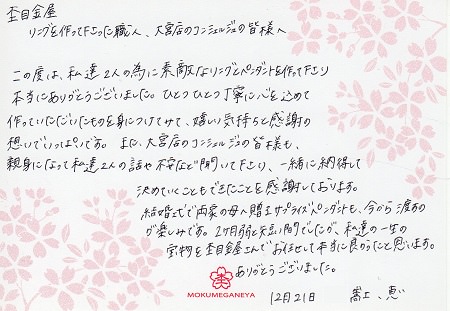 杢目金屋
リングを作って下さった職人、大宮店のコンシェルジュの皆様へ
この度は、私達2人の為に素敵なリングとペンダントを作って下さり
本当にありがとうございました。ひとつひとつ丁寧に心を込めて
作っていただいたものを身につけてみて、嬉しい気持ちと感謝の
想いでいっぱいです。また、大宮店のコンシェルジュの皆様も、
親身になって私達2人の話や不安など聞いて下さり、一緒に納得して
決めていくこともできたことを感謝しております。
結婚式で両家の母へ贈るサプライズペンダントも、今から渡すの
が楽しみです。2ヶ月弱と短い間でしたが、私達の一生の
宝物を杢目金屋さんでお任せして本当に良かったと思います。
ありがとうございました。
MOKUMEGANEYA
12月21日
恵